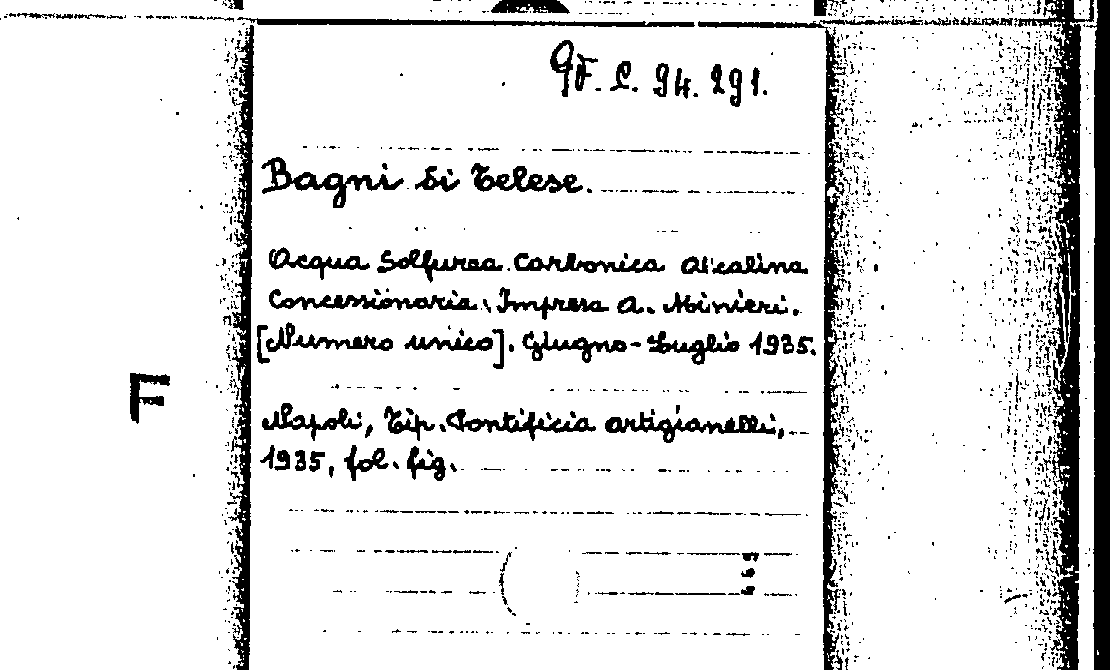 GF. C. 94. 291.
Bagni di Telese.
Acqua Solfurea Carbonica Alcalina
Concessionaria: Impresa A. Minieri.
[Numero unico]. Giugno-Luglio 1935.
F
Napoli, Tip. Pontificia artigianelli,
1935, fol. fig.